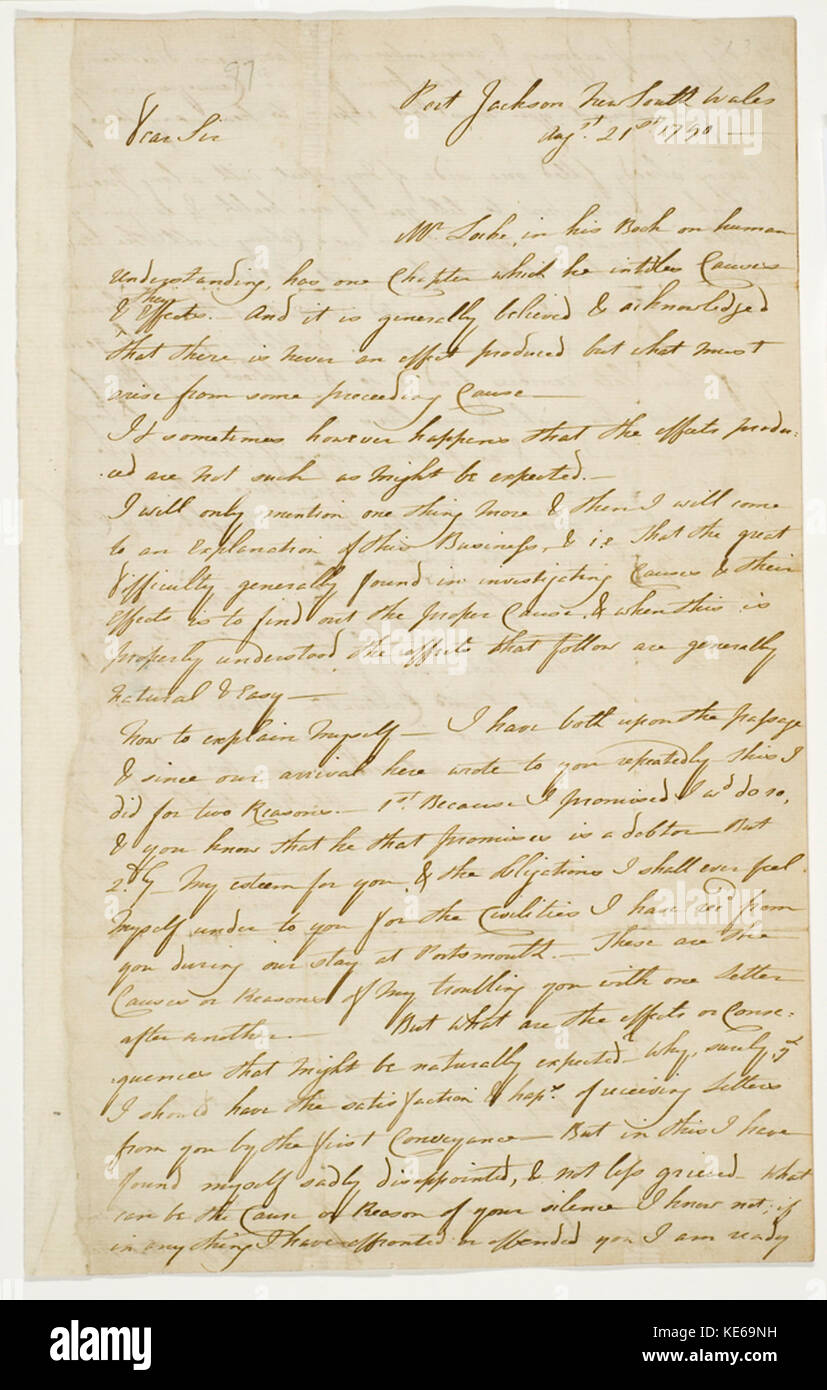 97
Port Jackson New South Wales
Dear Sir
Augst. 21st 1790 —
Mr. Locke, in his Book on human
Understanding, has one Chapter which he intitles Causes
& they Effects. — And it is generally believed & acknowledged
that there is never an effect produced but what must
arise from some preceeding Cause —
It sometimes however happens that the effects produ:
:ced are not such as might be expected. —
I will only mention one thing more & then I will come
to an Explanation of this Business, & is that the great
difficulty generally found in investigating Causes & their
Effects is to find out the proper Cause, & when this is
properly understood the effects that follow are generally
natural & Easy —
Now to explain myself — I have both upon the passage
& since our arrival here wrote to you repeatedly this I
did for two Reasons — 1st. Because I promised I wd do so,
& you know that he that promises is a debtor — But
2dly — My esteem for you, & the obligations I shall ever feel
myself under to you for the Civilities I have recd from
you during our stay at Portsmouth. — These are the
Causes or Reasons of my troubling you with one Letter
after another — But what are the effects or Conse:
quences that might be naturally expected — Why, surely yt
I should have the satisfaction & haps. of receiving Letters
from you by the first Conveyance — But in this I have
found myself sadly disappointed, & not less grieved — What
can be the Cause or Reason of your silence I know not; if
in any thing I have affronted or offended you I am ready
alamy
Image ID: KE69NH
www.alamy.com